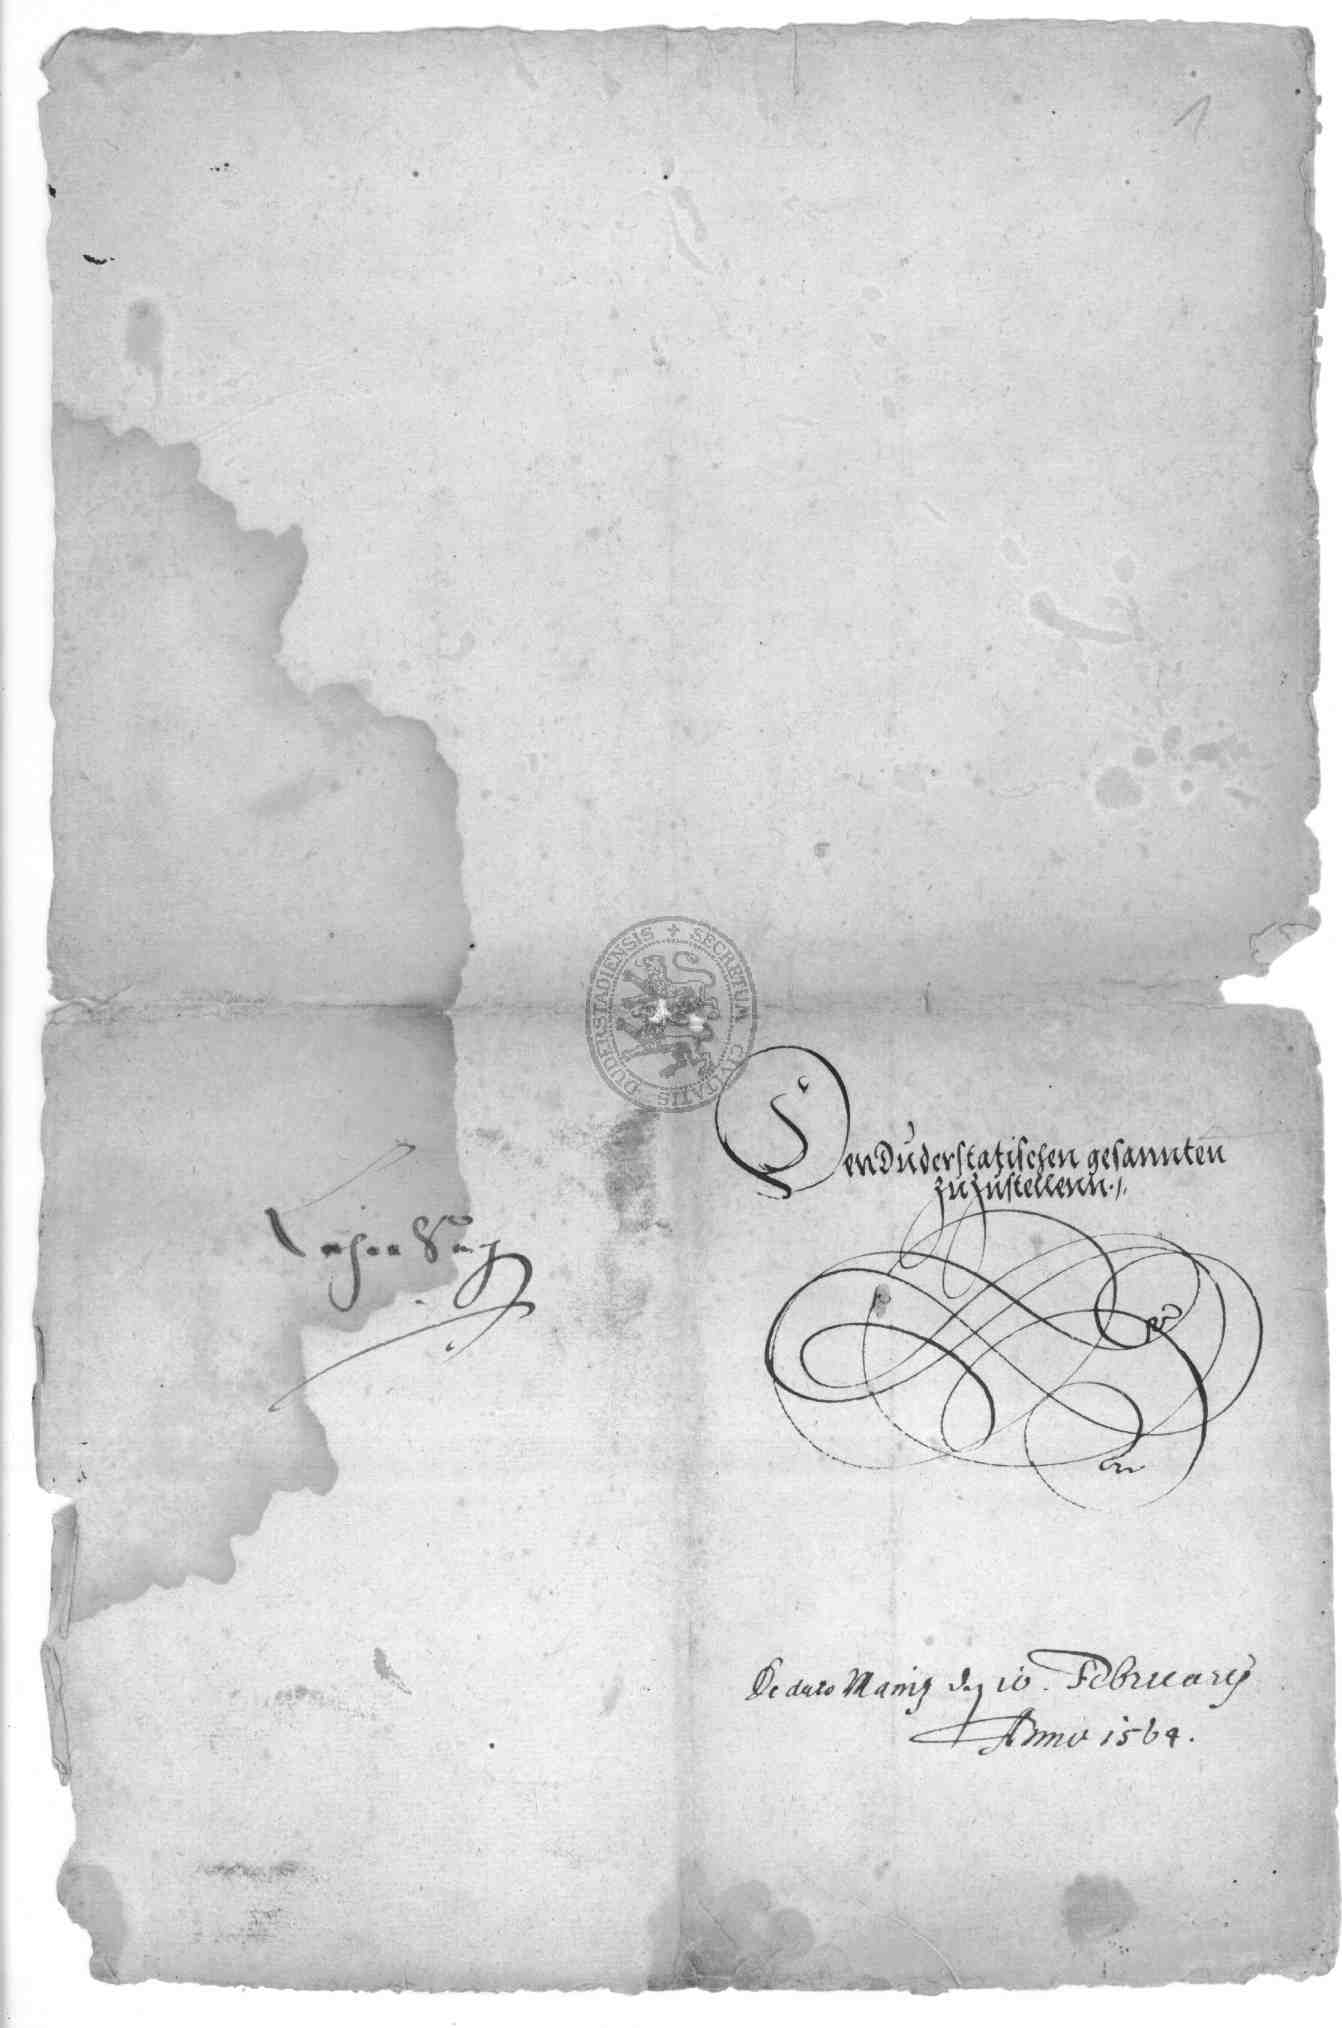 1
SECRETUM CIVITATIS DUDERSTADIENSIS
Den Duderstatischen gesannten
zuzustellenn
De dato Maintz den 10. Februarij
Anno 1564.